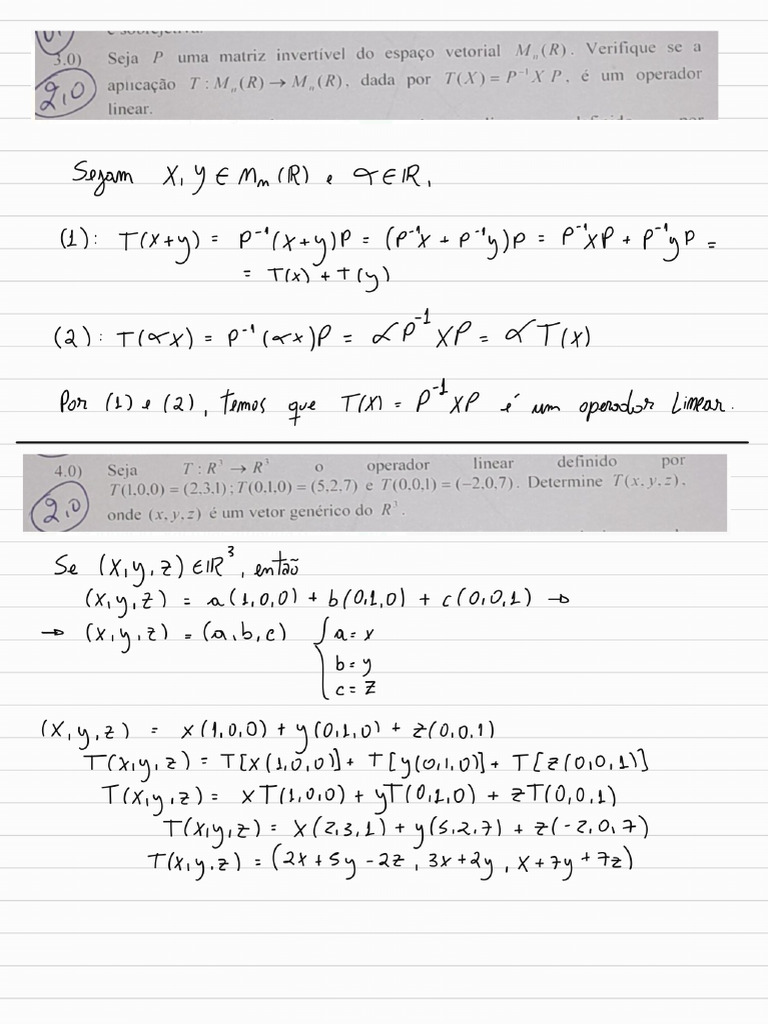 3.0) Seja P uma matriz invertível do espaço vetorial Mₙ(R). Verifique se a
2,0 aplicação T : Mₙ(R) → Mₙ(R), dada por T(X) = P⁻¹X P, é um operador
linear.
Sejam X, Y ∈ Mn(R) e α ∈ IR,
(1): T(X+Y) = P⁻¹(X+Y)P = (P⁻¹X + P⁻¹Y)P = P⁻¹XP + P⁻¹YP =
= T(X) + T(Y)
(2): T(αX) = P⁻¹(αX)P = αP⁻¹XP = αT(X)
Por (1) e (2), temos que T(X) = P⁻¹XP é um operador Linear.
4.0) Seja T : R³ → R³ o operador linear definido por
T(1,0,0) = (2,3,1); T(0,1,0) = (5,2,7) e T(0,0,1) = (−2,0,7). Determine T(x, y, z),
2,0 onde (x, y, z) é um vetor genérico do R³.
Se (x,y,z) ∈ IR³, então
(x,y,z) = a(1,0,0) + b(0,1,0) + c(0,0,1) →
→ (x,y,z) = (a,b,c) { a = x
b = y
c = z
(x,y,z) = x(1,0,0) + y(0,1,0) + z(0,0,1)
T(x,y,z) = T[x(1,0,0)] + T[y(0,1,0)] + T[z(0,0,1)]
T(x,y,z) = xT(1,0,0) + yT(0,1,0) + zT(0,0,1)
T(x,y,z) = x(2,3,1) + y(5,2,7) + z(-2,0,7)
T(x,y,z) = (2x + 5y - 2z, 3x + 2y, x + 7y + 7z)